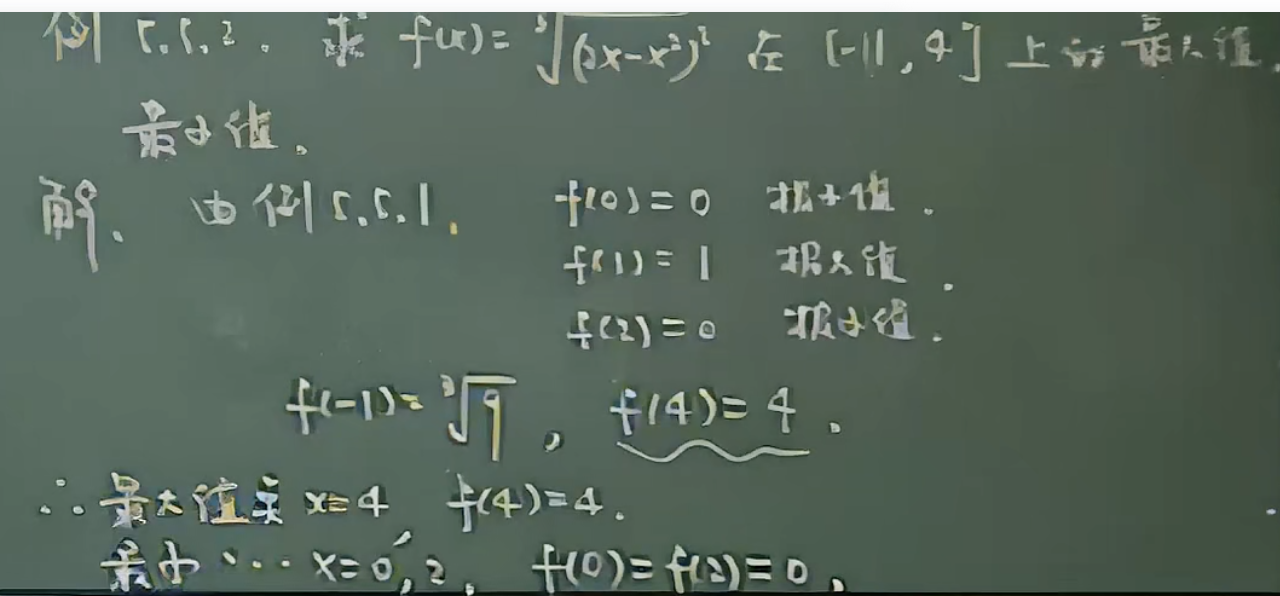 例 5.5.2. 求 f(x)= ∛(2x-x²)² 在 [-1, 4] 上的最大值,
最小值.
解. 由例 5.5.1. f(0)=0 极小值.
f(1)=1 极大值.
f(2)=0 极小值.
f(-1)=∛9, f(4)=4.
∴ 最大值是 x=4 f(4)=4.
最小 … x=0,2, f(0)=f(2)=0.